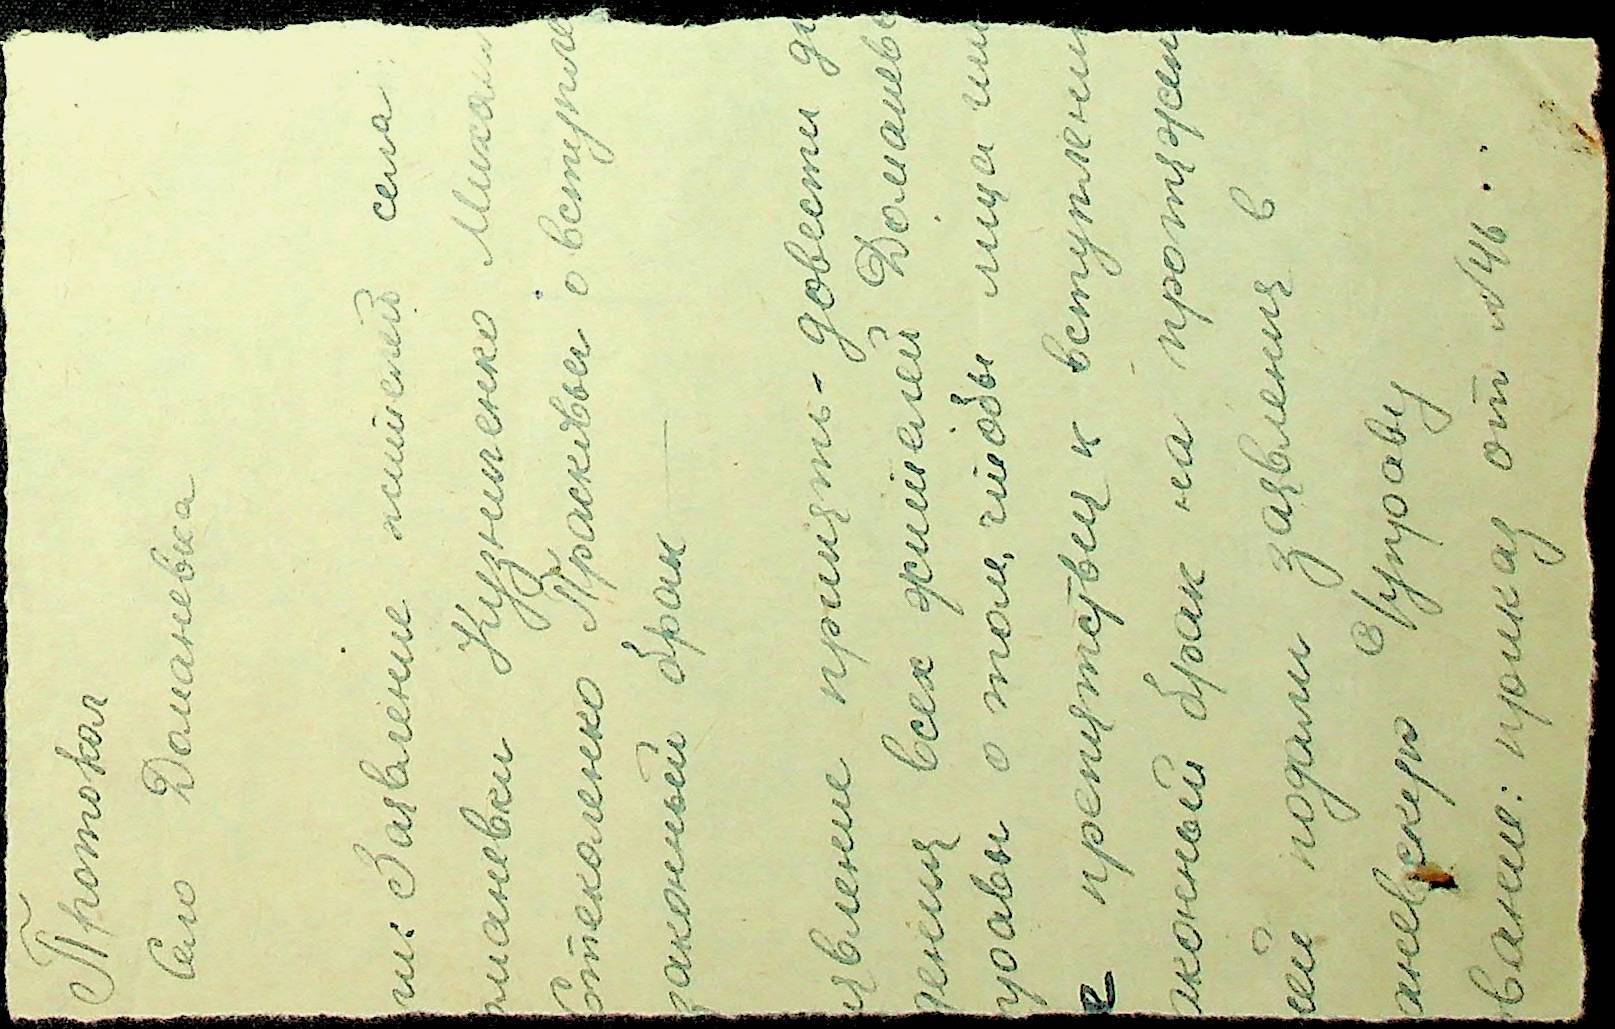 Протокол
Село Доманевка
ли: Заявление жителей села
маневки Кузниченко Михаил
Стеколенко Прасковьи о вступле
законный брак
явление принять - довести до
дения всех жителей Доманев
управы о том, чтобы лица им
е препятствия к вступлени
аконный брак на протяжен
подали заявления в
аневскую с/управу
вание: приказ от №46.